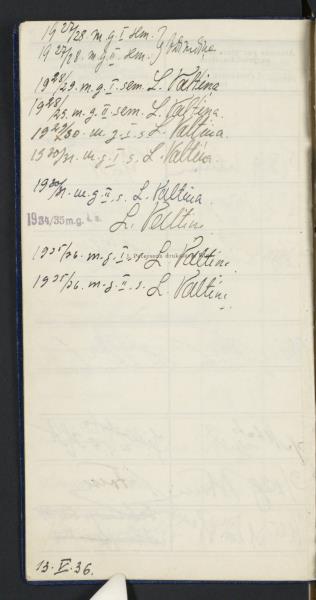 1927/28. m. g. I sem.
1927/28. m. g. II sem.
1928/29. m. g. I. sem. L. Valtina
1928/29. m. g. II sem. L. Valtina.
1929/30. m. g. I. s. L. Valtina.
1930/31. m. g. I. s. L. Valtina.
1930/31. m. g. II. s. L. Valtina
1934/35 m. g.
L. Valtin
1935/36. m. g. I. s. L. Valtin
1935/36. m. g. II. s. L. Valtin
13. V. 36.